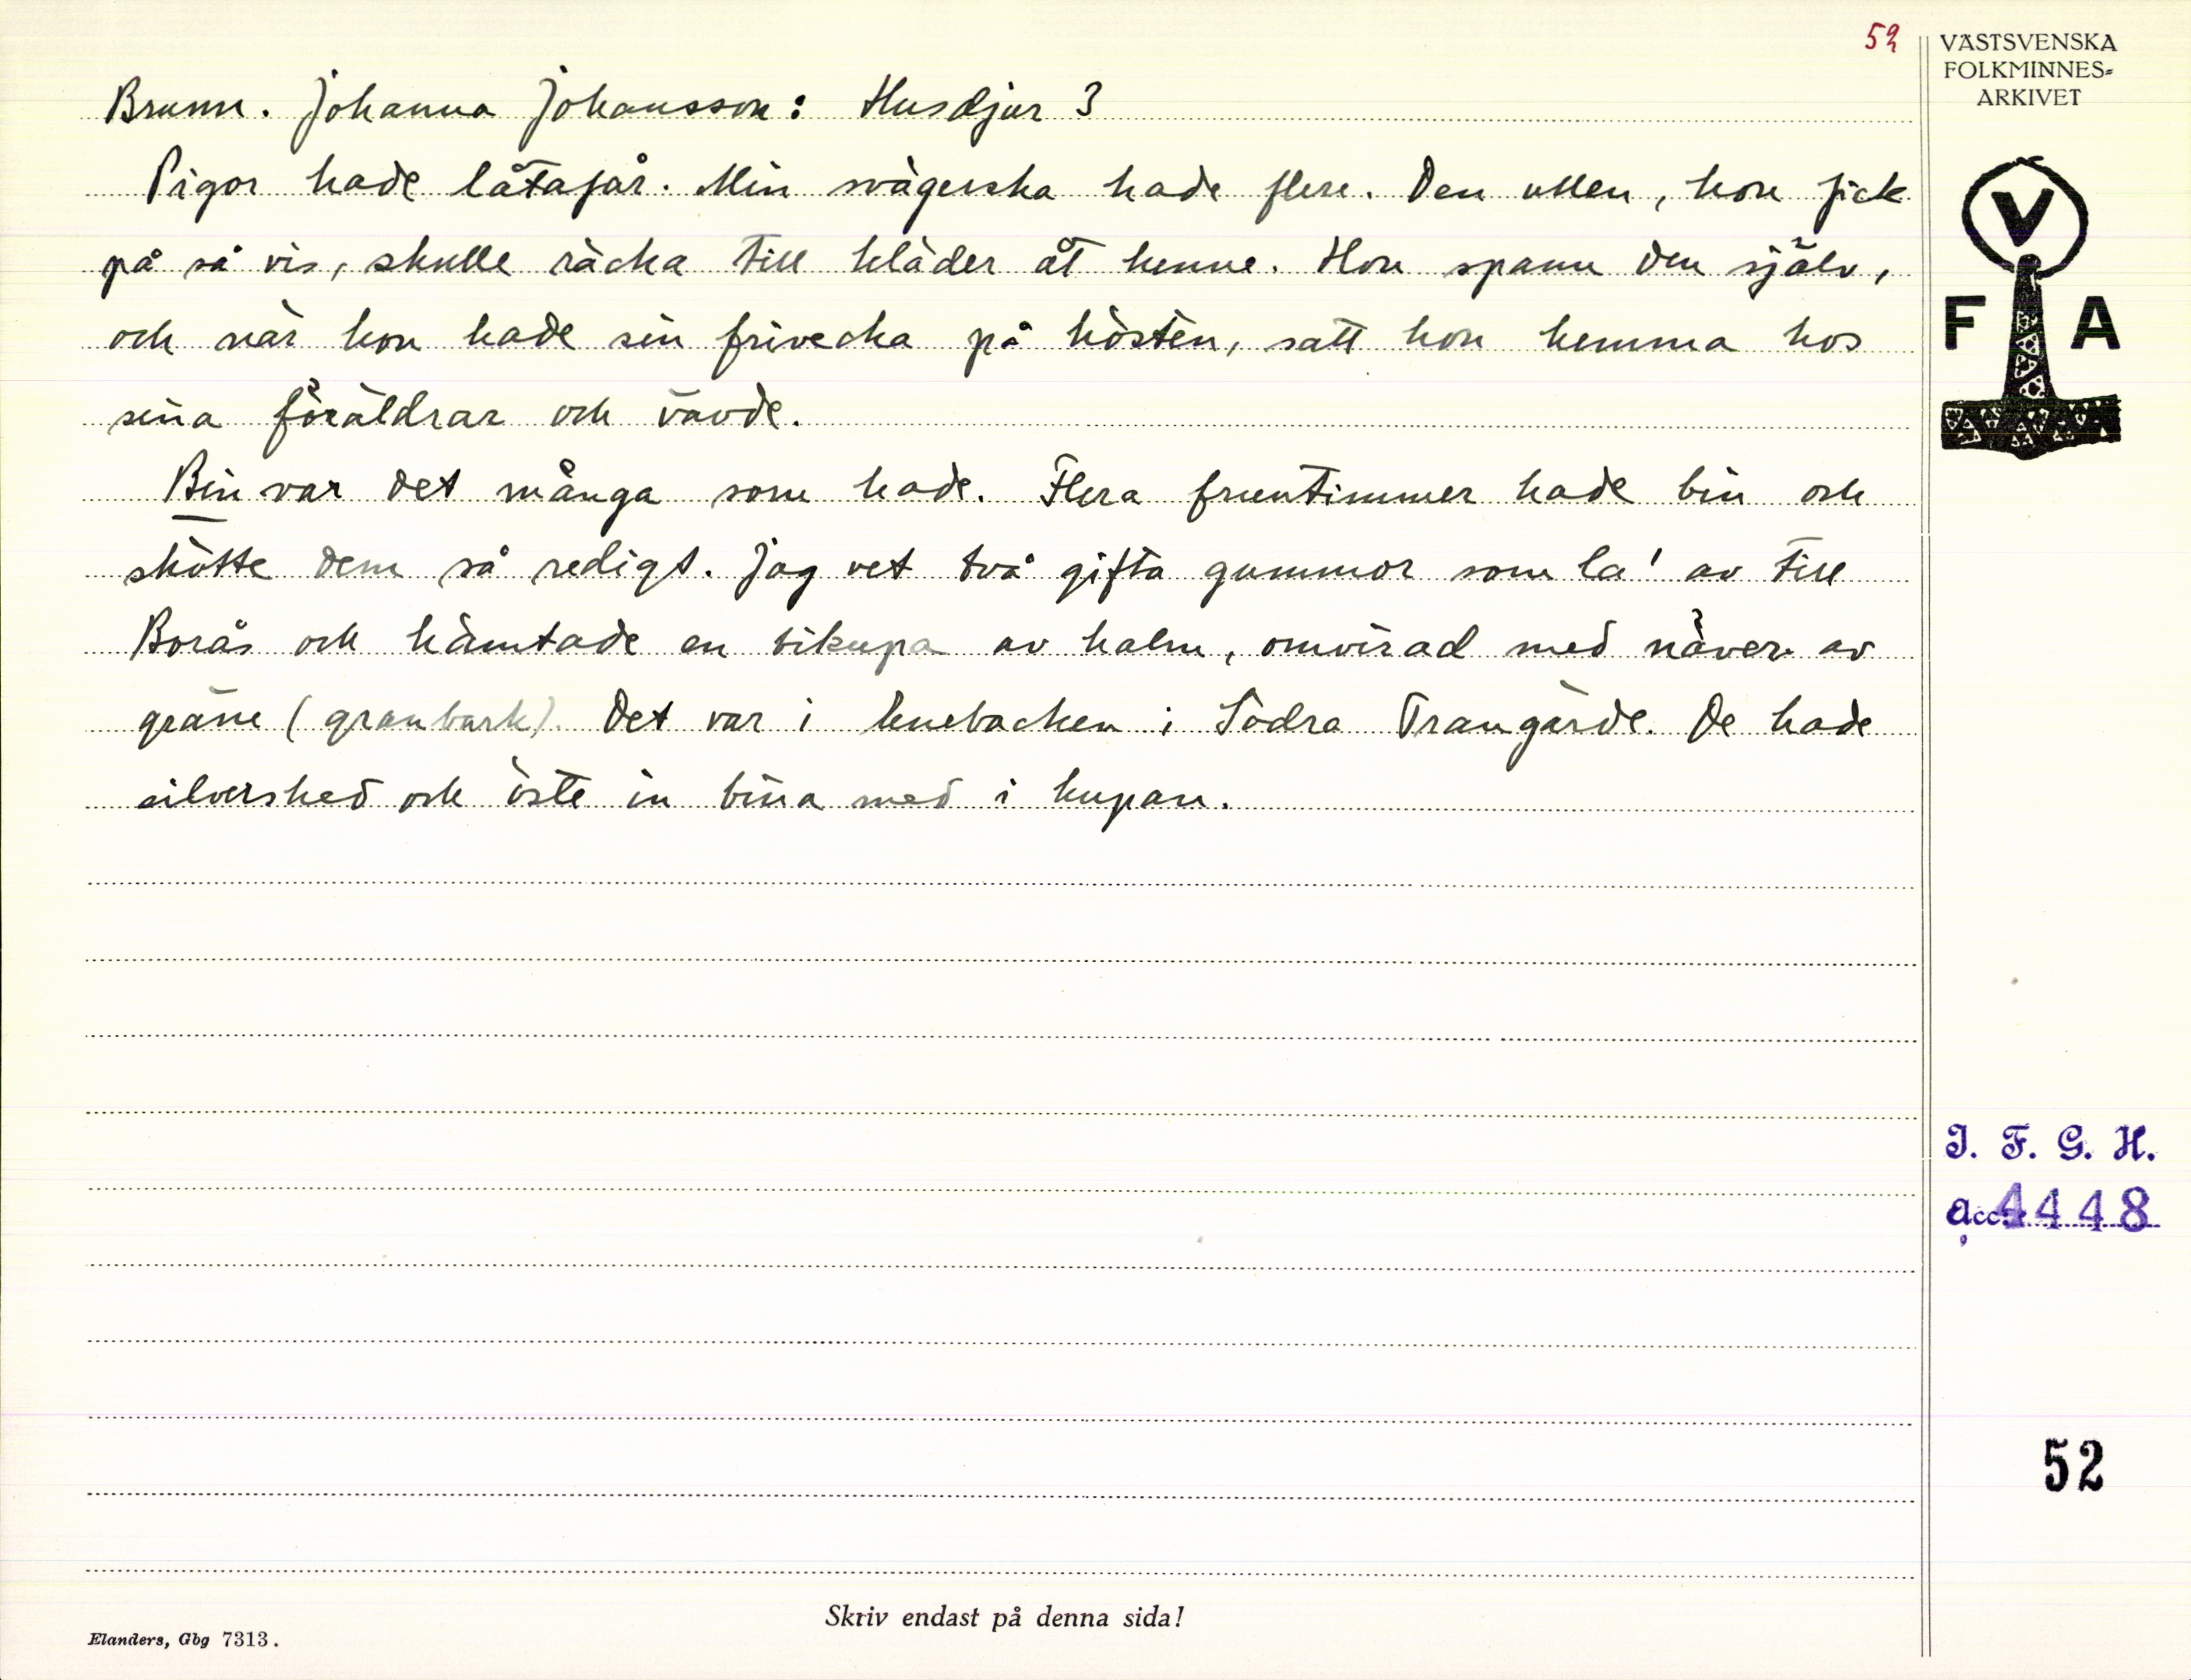 52
VÄSTSVENSKA
FOLKMINNES=
ARKIVET
Brunn. Johanna Johansson: Husdjur 3
Pigor hade låtafår. Min svägerska hade flere. Den ullen, hon fick
på så vis, skulle räcka till kläder åt henne. Hon spann den själv,
och när hon hade sin frivecka på hösten, satt hon hemma hos
sina föräldrar och vävde.
Bin var det många som hade. Flera fruentimmer hade bin och
skötte dem så redigt. Jag vet två gifta gummor som la' av till
Borås och hämtade en bikupa av halm, omvirad med näver av
gräne (granbark). Det var i Lenebacken i Södra Trangärde. De hade
silversked och öste in bina med i kupan.
V
F A
I. F. G. H.
acc. 4448
52
Skriv endast på denna sida!
Elanders, Gbg 7313.